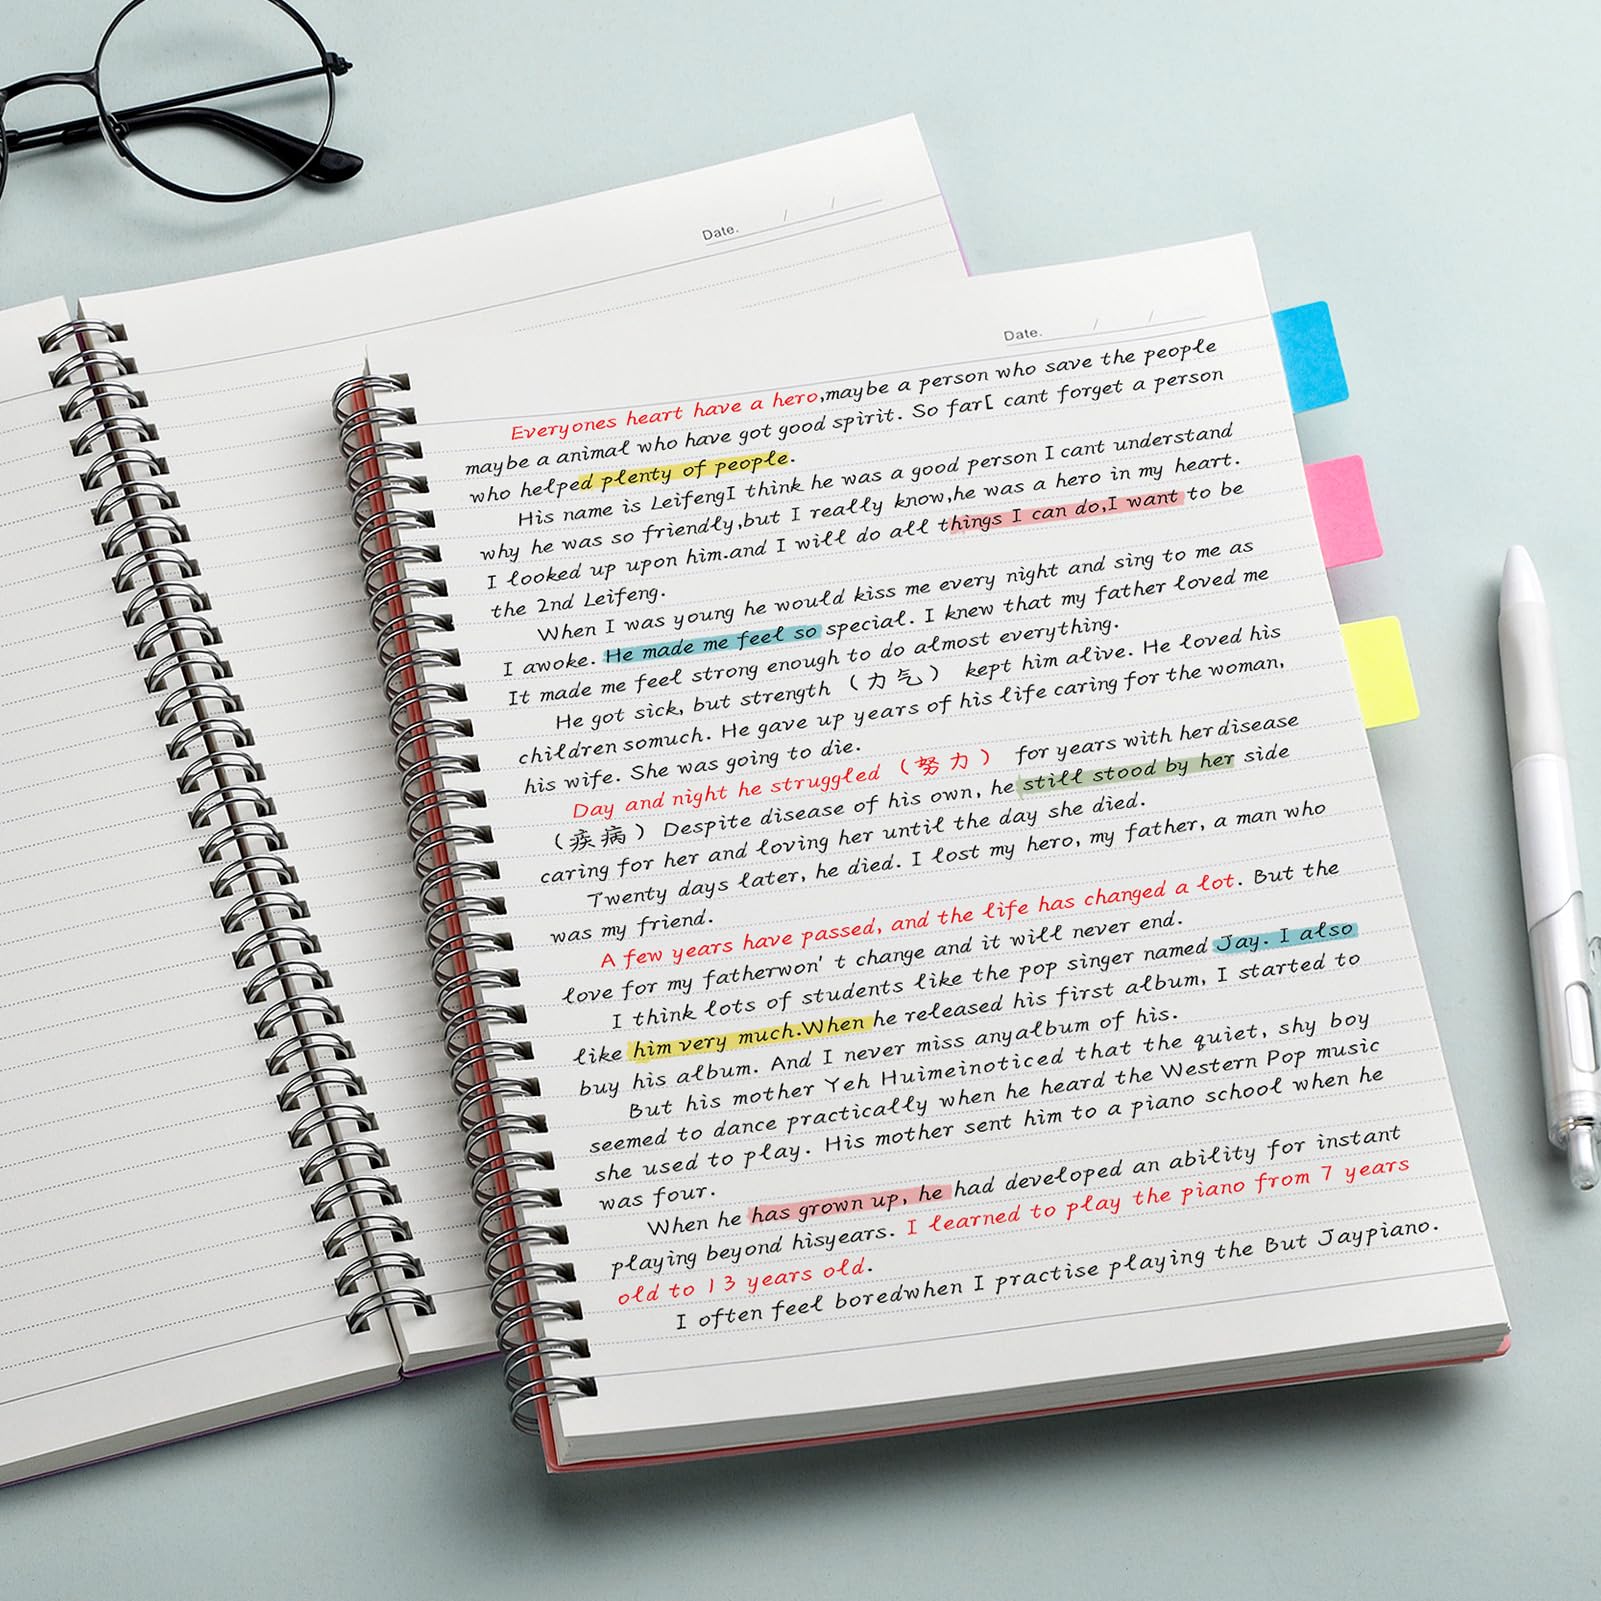 Date. / /
Date. / /
Everyones heart have a hero,maybe a person who save the people
maybe a animal who have got good spirit. So far[ cant forget a person
who helped plenty of people.
His name is LeifengI think he was a good person I cant understand
why he was so friendly,but I really know,he was a hero in my heart.
I looked up upon him.and I will do all things I can do,I want to be
the 2nd Leifeng.
When I was young he would kiss me every night and sing to me as
I awoke. He made me feel so special. I knew that my father loved me
It made me feel strong enough to do almost everything.
He got sick, but strength （力气） kept him alive. He loved his
children somuch. He gave up years of his life caring for the woman,
his wife. She was going to die.
Day and night he struggled （努力） for years with her disease
（疾病）Despite disease of his own, he still stood by her side
caring for her and loving her until the day she died.
Twenty days later, he died. I lost my hero, my father, a man who
was my friend.
A few years have passed, and the life has changed a lot. But the
love for my fatherwon' t change and it will never end.
I think lots of students like the pop singer named Jay. I also
like him very much.When he released his first album, I started to
buy his album. And I never miss anyalbum of his.
But his mother Yeh Huimeinoticed that the quiet, shy boy
seemed to dance practically when he heard the Western Pop music
she used to play. His mother sent him to a piano school when he
was four.
When he has grown up, he had developed an ability for instant
playing beyond hisyears. I learned to play the piano from 7 years
old to 13 years old.
I often feel boredwhen I practise playing the But Jaypiano.